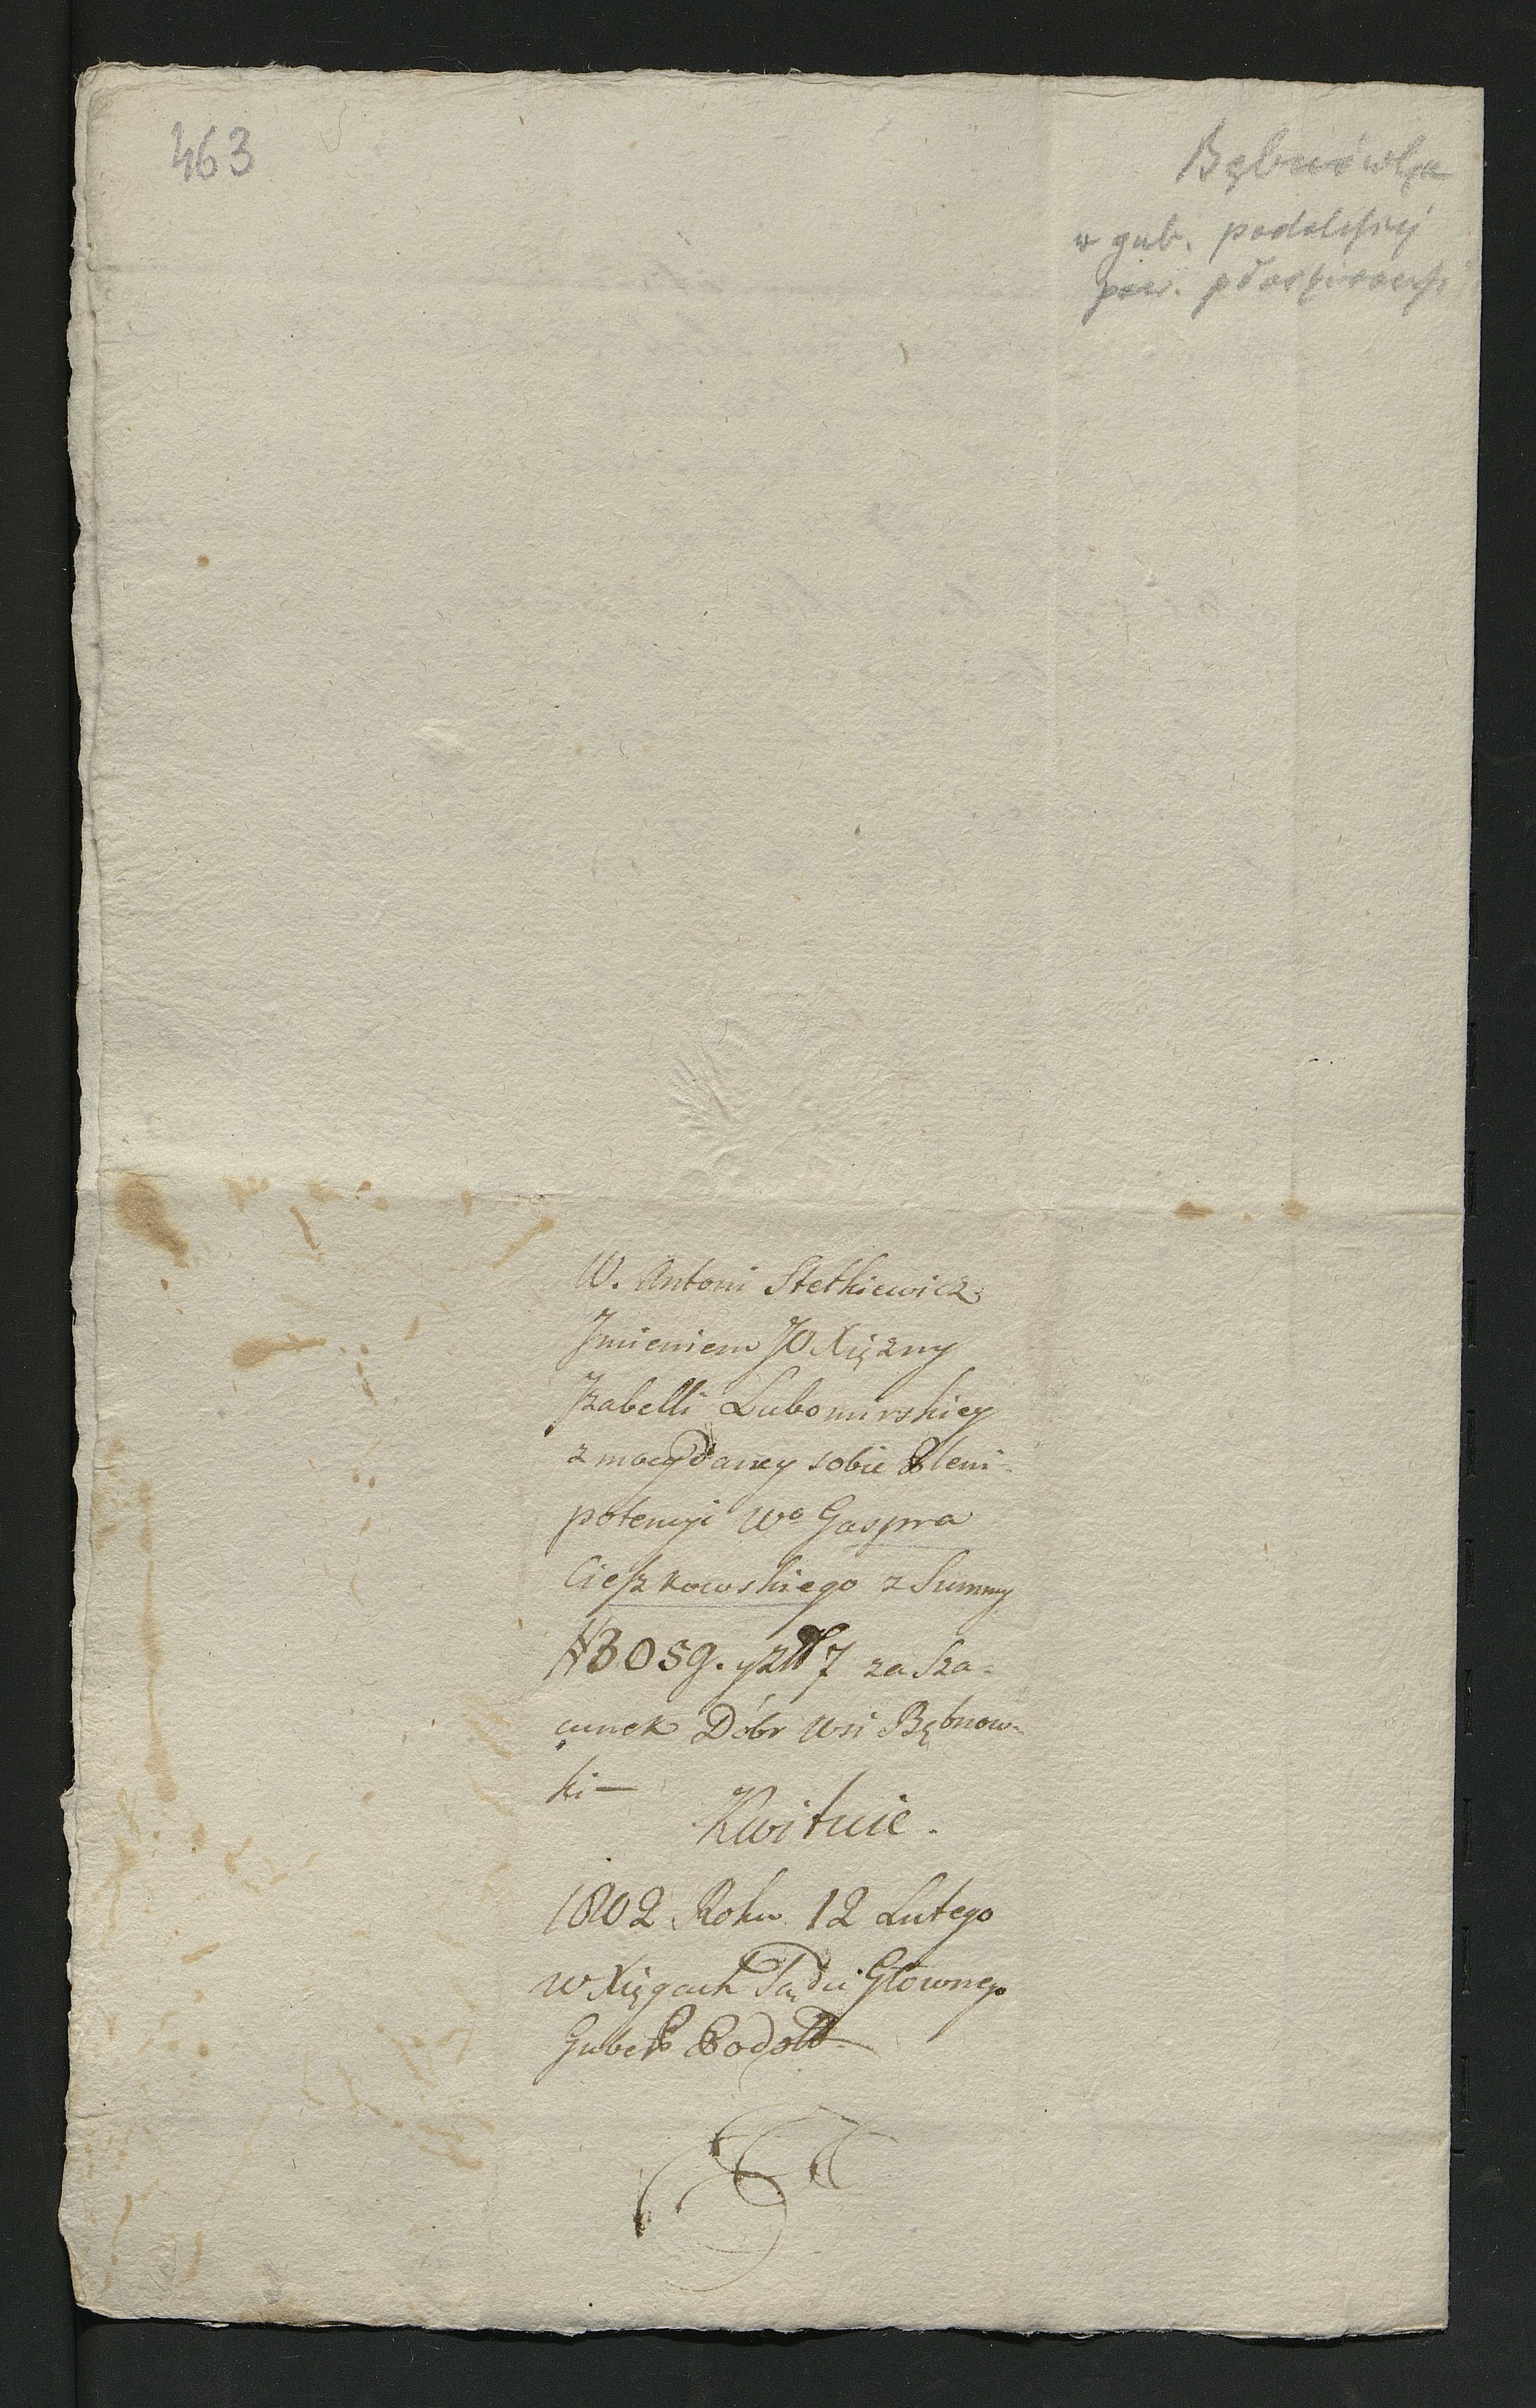 463
Bębnówka
w gub. podolskiej
pow. płoskirowski
W. Antoni Stetkiewicz
Jmieniem JO Xiężny
Jzabelli Lubomirskiey
z mocy daney sobie Pleni-
potencyi Wo Gaspra
Cieszkowskiego z Summy
# 3059. y złł 7 za Sza-
cunek Dóbr Wsi Bębnow-
ki —
Kwituie.
1802 Roku 12 Lutego
w Xięgach Sądu Głownego
Guber Podol